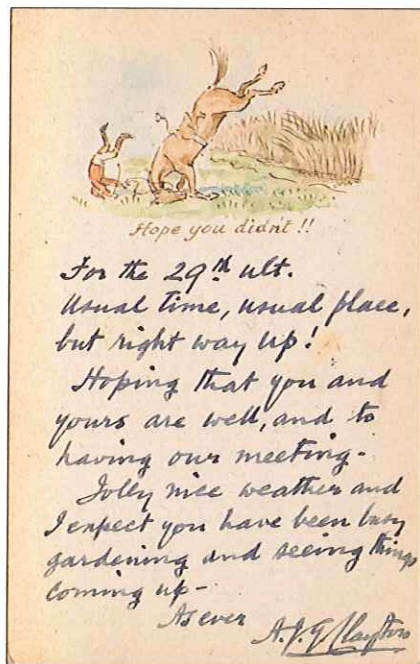 Hope you didn't !!
For the 29th ult.
Usual time, usual place,
but right way up!
Hoping that you and
yours are well, and to
having our meeting -
Jolly nice weather and
I expect you have been busy
gardening and seeing things
coming up -
As ever
A.J.G Clayton